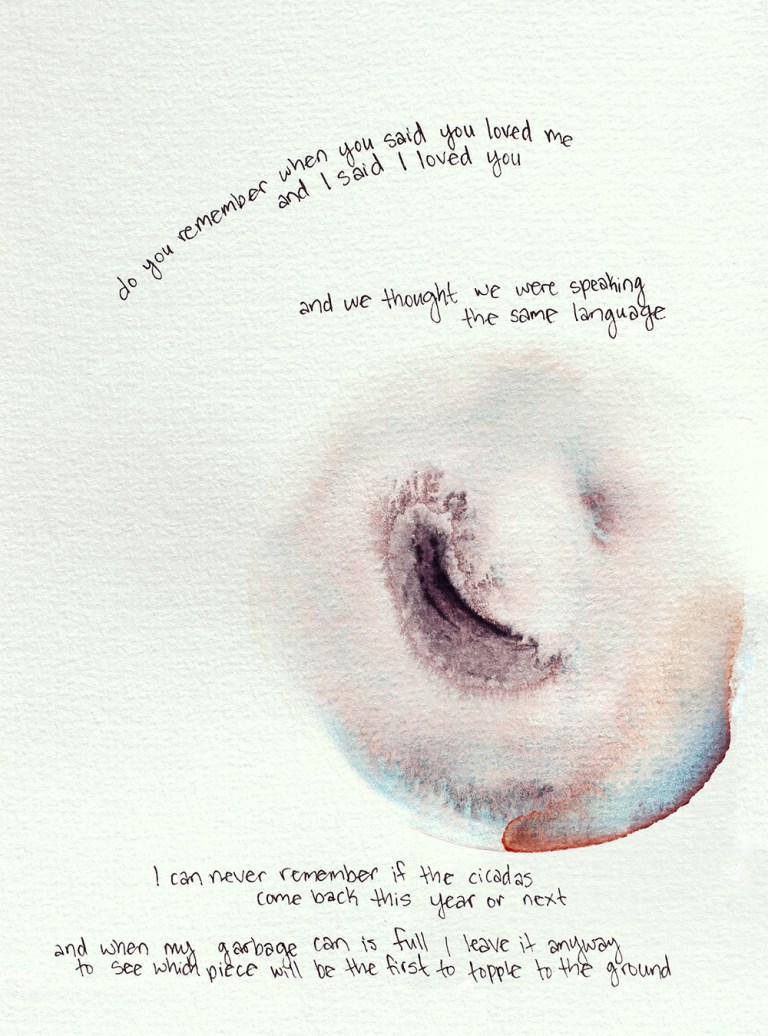 do you remember when you said you loved me
and I said I loved you
and we thought we were speaking
the same language
I can never remember if the cicadas
come back this year or next
and when my garbage can is full I leave it anyway
to see which piece will be the first to topple to the ground